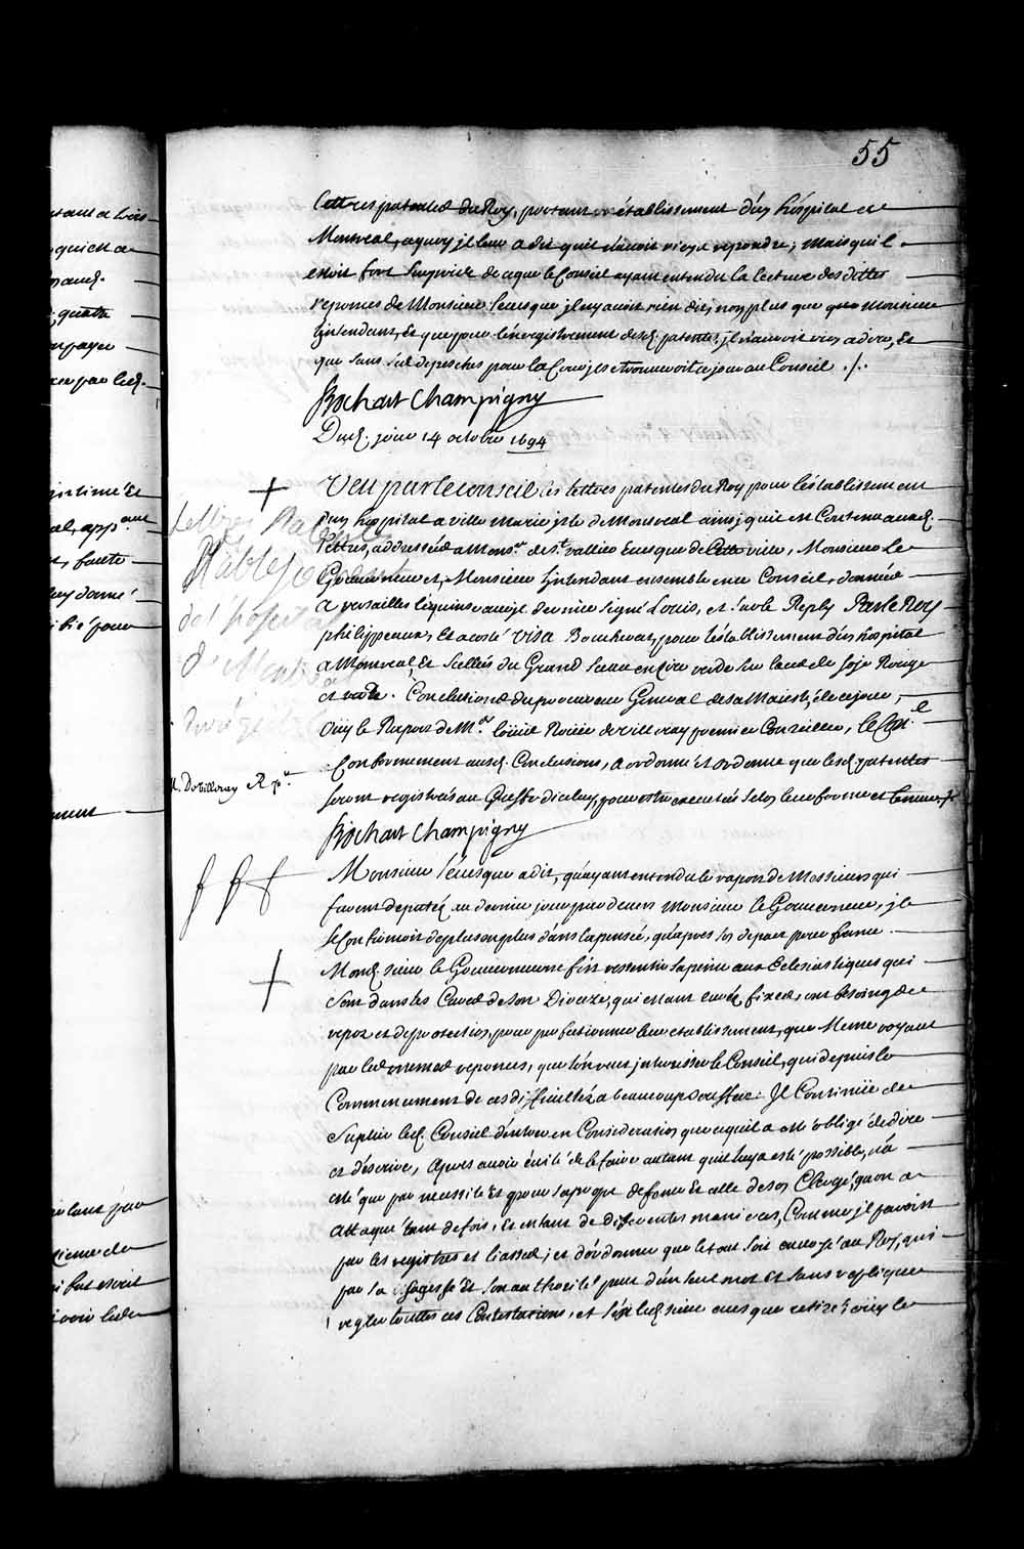 55
lettres patentes du Roy, portant establissement d'un hôpital a
Montreal, aquoy il leur a dit qu'il n'avoit rien a repondre, mais qu'il
estoit fort surpris de ce que le Conseil ayant entendu la lecture des dittes
reponces de Monsieur l'euesque il n'y auoit rien dit, non plus que Monsieur
l'intendant, Et que pour l'enregistrement desd. patentes, il n'auoit rien a dire, Et
que sans ses depesches pour la Cour, il se trouueroit ce jour au Conseil ./.
Bochart Champigny
Dud. jour 14 octobre 1694
Veu par le conseil les lettres patentes du Roy pour l'establissement
d'un hospital a ville Marie isle de Montreal ainsy qu'il est Contenu ausd.
lettres, addressées a Mons.r de s.t vallier Euesque de Cette ville, Monsieur Le
Gouuerneur et, Monsieur Intendant ensemble en ce Conseil, données
A versailles le quinze auril dernier signé Louis, et sur le Reply Par le Roy
phelippeaux, Et a costé Visa Boucherat, pour l'establissement d'un hospital
a Montreal, Et scellées du Grand Sceau en cire verde sur lacs de soye Rouge
et verte. Conclusions du procureur General de sa Maiesté, de ce jour,
Ouy le Raport de M.e Louis Roüer de villeray premier Conseiller, le Con.el
Conformement ausd. Conclusions, a ordonné et ordonne que lesd. patentes
seront registrées au Greffe diceluy, pour estre executées selon leur forme et teneur ./.
Lettres Patentes
D'établissement
de l'hopital
d. Montreal
M. De Villeray R. p.er
Bochart Champigny
Monsieur l'euesque a dit, qu'ayant entendu le raport de Messieurs qui
furent deputéz au dernier jour par deuers Monsieur le Gouuerneur, il
se Confirmoit de plus en plus dans la pensée, qu'apres son depart pour france
Mond. sieur le Gouuerneur fist ressentir sa peine aux Eclesiastiques qui
sont dans les Cures de son Dioceze, qui estant curéz fixes, ont besoing de
repos et de protection, pour perfectionner leur establissement, que Mesme voyant
par les mesmes reponces, que l'on veut interesser le Conseil, qui depuis le
Commencement de ces difficultéz a beaucoup souffert. Il Continuë de
suplier led. Conseil d'entrer en Consideration que ce qu'il a esté obligé de dire
et d'écrire, apres auoir éuité de le faire autant qu'il luy a esté possible, n'a
esté que par necessité Et pour sa propre defence Et celle de son Clergé, qu'on a
attaqué tant de fois, Et en tant de differentes manieres, Comme il paroist
par les registres et liasses; et d'ordonner que le tout soit enuoyé au Roy, qui
par sa sagesse Et son authorité peut d'un seul mot Et sans replique
regler touttes ces Contestations, et s'est led. sieur euesque retiré; oüy le